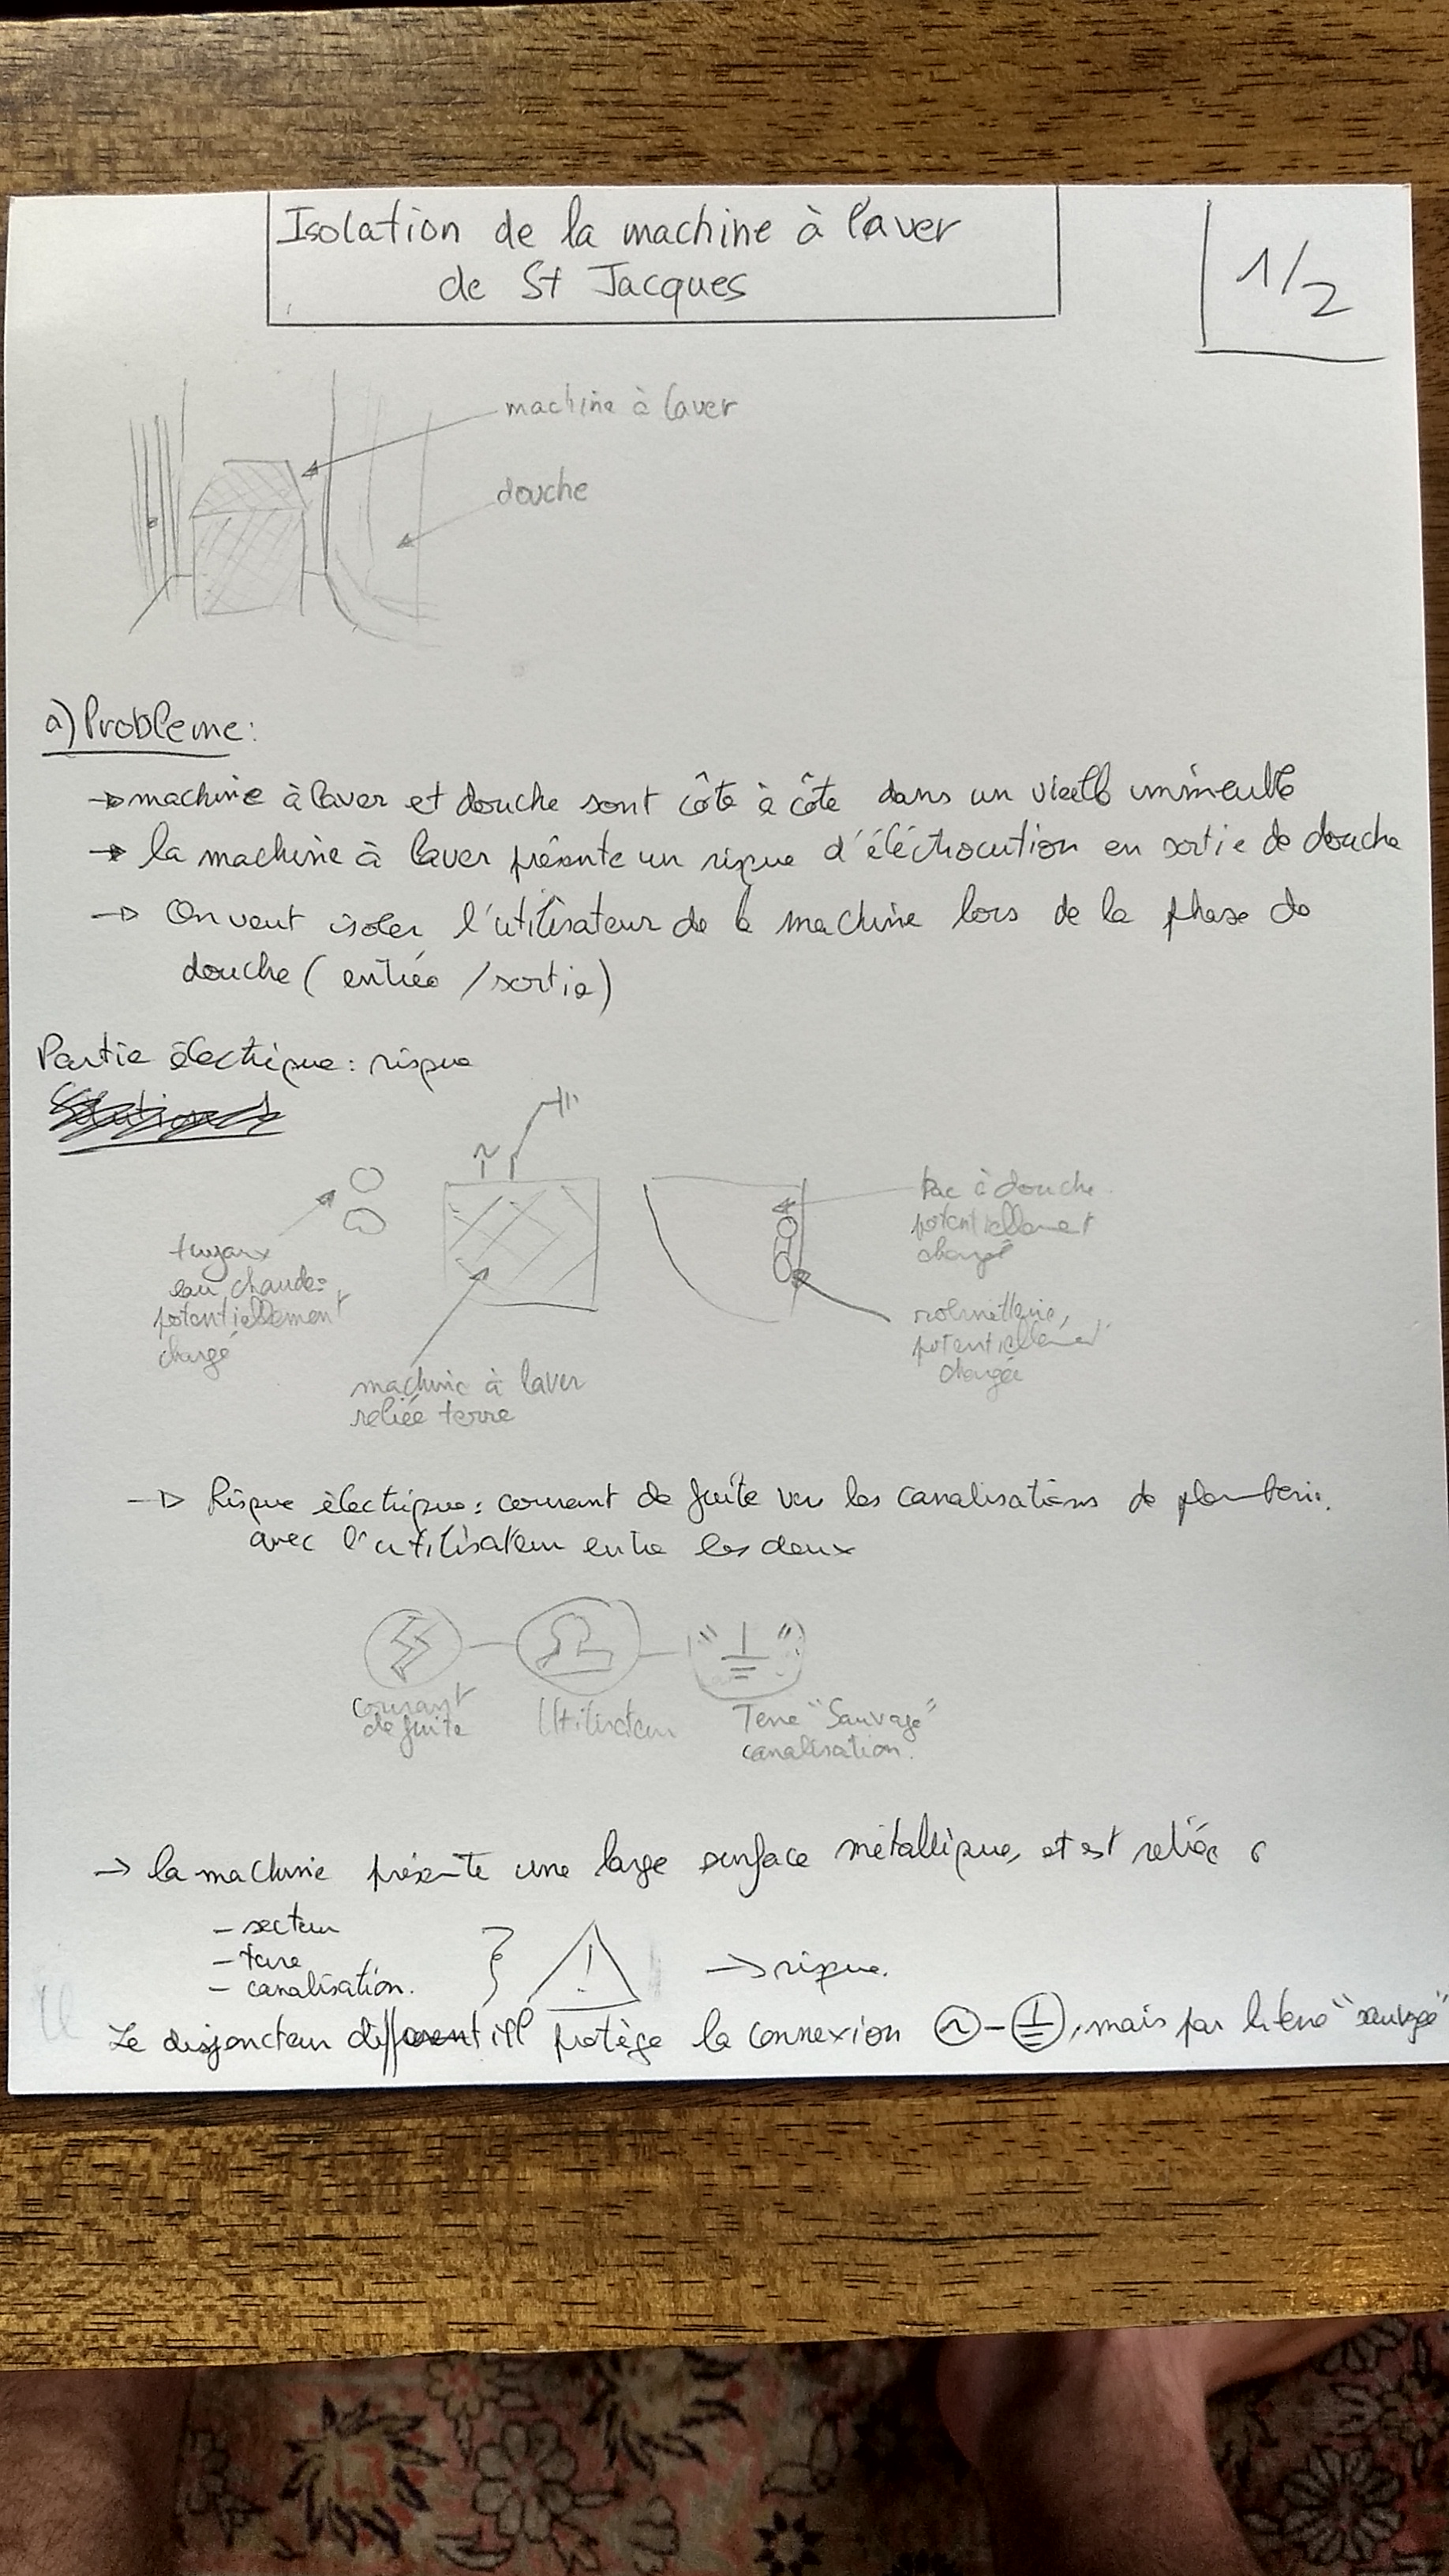 Isolation de la machine à laver
de St Jacques
1/2
machine à laver
douche
a) Probleme:
→ machine à laver et douche sont côte à côte dans un vieille immeuble
→ la machine à laver présente un risque d'éléctrocution en sortie de douche
→ On veut isoler l'utilisateur de la machine lors de la phase de
douche (entrée / sortie)
Partie électrique: risque
~
tuyaux
eau chaude:
potentiellement
chargé
machine à laver
reliée terre
bac à douche
potentiellement
chargé
robinetterie,
potentiellement
chargée
→ Risque électrique: courant de fuite vers les canalisations de plomberie.
avec l'utilisateur entre les deux
courant
de fuite
Utilisateur
Terre "Sauvage"
canalisation.
→ la machine présente une large surface métallique, et est reliée à
- secteur
- terre
- canalisation.
!
→ risque.
Le disjoncteur différentiel protège la connexion ~ - ⏚, mais pas la terre "sauvage"